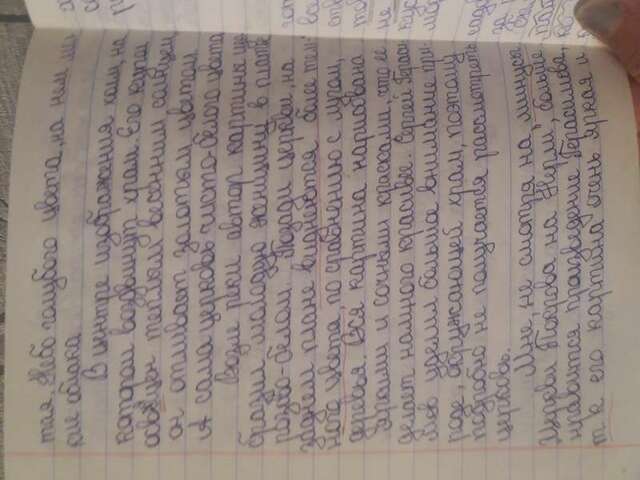 тая. Небо голубого цвета, на нем мел-
кие облака.
В центре изображения холм, на
котором воздвинут храм. Его купол
освящен теплым весенним солнцем,
он отливает золотым цветом.
А сама церковь чисто-белого цвета.
Возле реки автор картины изо-
бразил молодую женщину в платье
розово-белом. Позади церкви, на
заднем плане виднеются более тем-
ного цвета, по сравнению с лугом,
деревья. Вся картина нарисована
яркими и сочными красками, что её
делает намного красивее. Сергей Гераси-
мов уделил больше внимание при-
роде, окружающей храм, поэтому
подробно не получается рассмотреть
церковь.
Мне, не смотря на минусы
"Церкви Покрова на Нерли", больше
нравится произведение Герасимова,
т к его картина очень яркая и